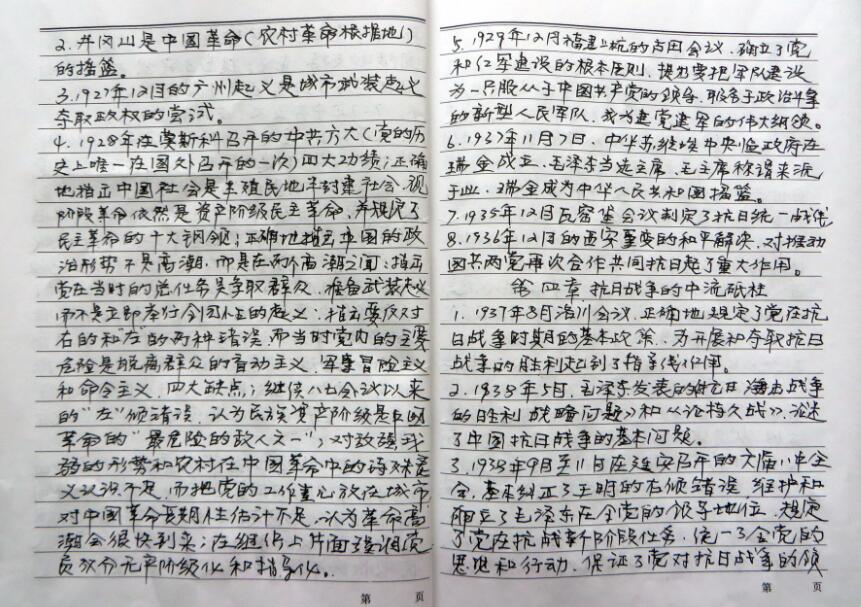 2. 井冈山是中国革命(农村革命根据地)
的摇篮。
3.1927年12月的广州起义是城市武装起义
夺取政权的尝试。
4. 1928年在莫斯科召开的中共六大(党的历
史上唯一在国外召开的一次)四大功绩;正确
地指出中国社会是半殖民地半封建社会.现
阶段革命依然是资产阶级民主革命.并规定了
民主革命的十大钢领;正确地指出中国的政
治形势不是高潮.而是在两个高潮之间;指出
党在当时的总任务是争取群众.准备武装起义
而不是立即举行全国性的起义;指出要反对
右的和"左"的两种错误.而当时党内的主要
危险是脱离群众的盲动主义.军事冒险主义
和命令主义.四大缺点;继续八七会议以来
的"左"倾错误.认为民族资产阶级是中国
革命的"最危险的敌人之一";对敌强我
弱的形势和农村在中国革命中的特殊意
义认识不足.而把党的工作重心放在城市
对中国革命长期性估计不足.认为革命高
潮会很快到来;在组织上片面了强调党
员成分无产阶级化和指导化。
第 页
5. 1929年12月福建上杭的古田会议.确立了党
和红军建设的根本原则.提出要把军队建设
为一只服从于中国共产党的领导.服务于政治斗争
的新型人民军队.成为建党建军的伟大纲领。
6.1937年11月7日.中华苏维埃中央临政府在
瑞金成立.毛泽东当选主席.毛主席称谓来源
于此.瑞金成为中华人民共和国摇篮。
7.1935年12月瓦窑堡会议制定了抗日统一战线
8.1936年12月的西安事变的和平解决.对推动
国共两党再次合作共同抗日起了重大作用。
第四章.抗日战争的中流砥柱
1. 1937年8月洛川会议.正确地规定了党在抗
日战争时期的基本政策.为开展和夺取抗日
战争的胜利起到了指导性作用。
2. 1938年5月.毛泽东发表的《抗日游击战争
的胜利战略问题》和《论持久战》.论述
了中国抗日战争的基本问题。
3. 1938年9月至11月在延安召开的六届六中全
会.基本纠正了王明的右倾错误 维护和
确立了毛泽东在全党的领导地位.规定
了党在抗战新阶段任务.统一了全党的
思想和行动.保证了党对抗日战争的领
第 页